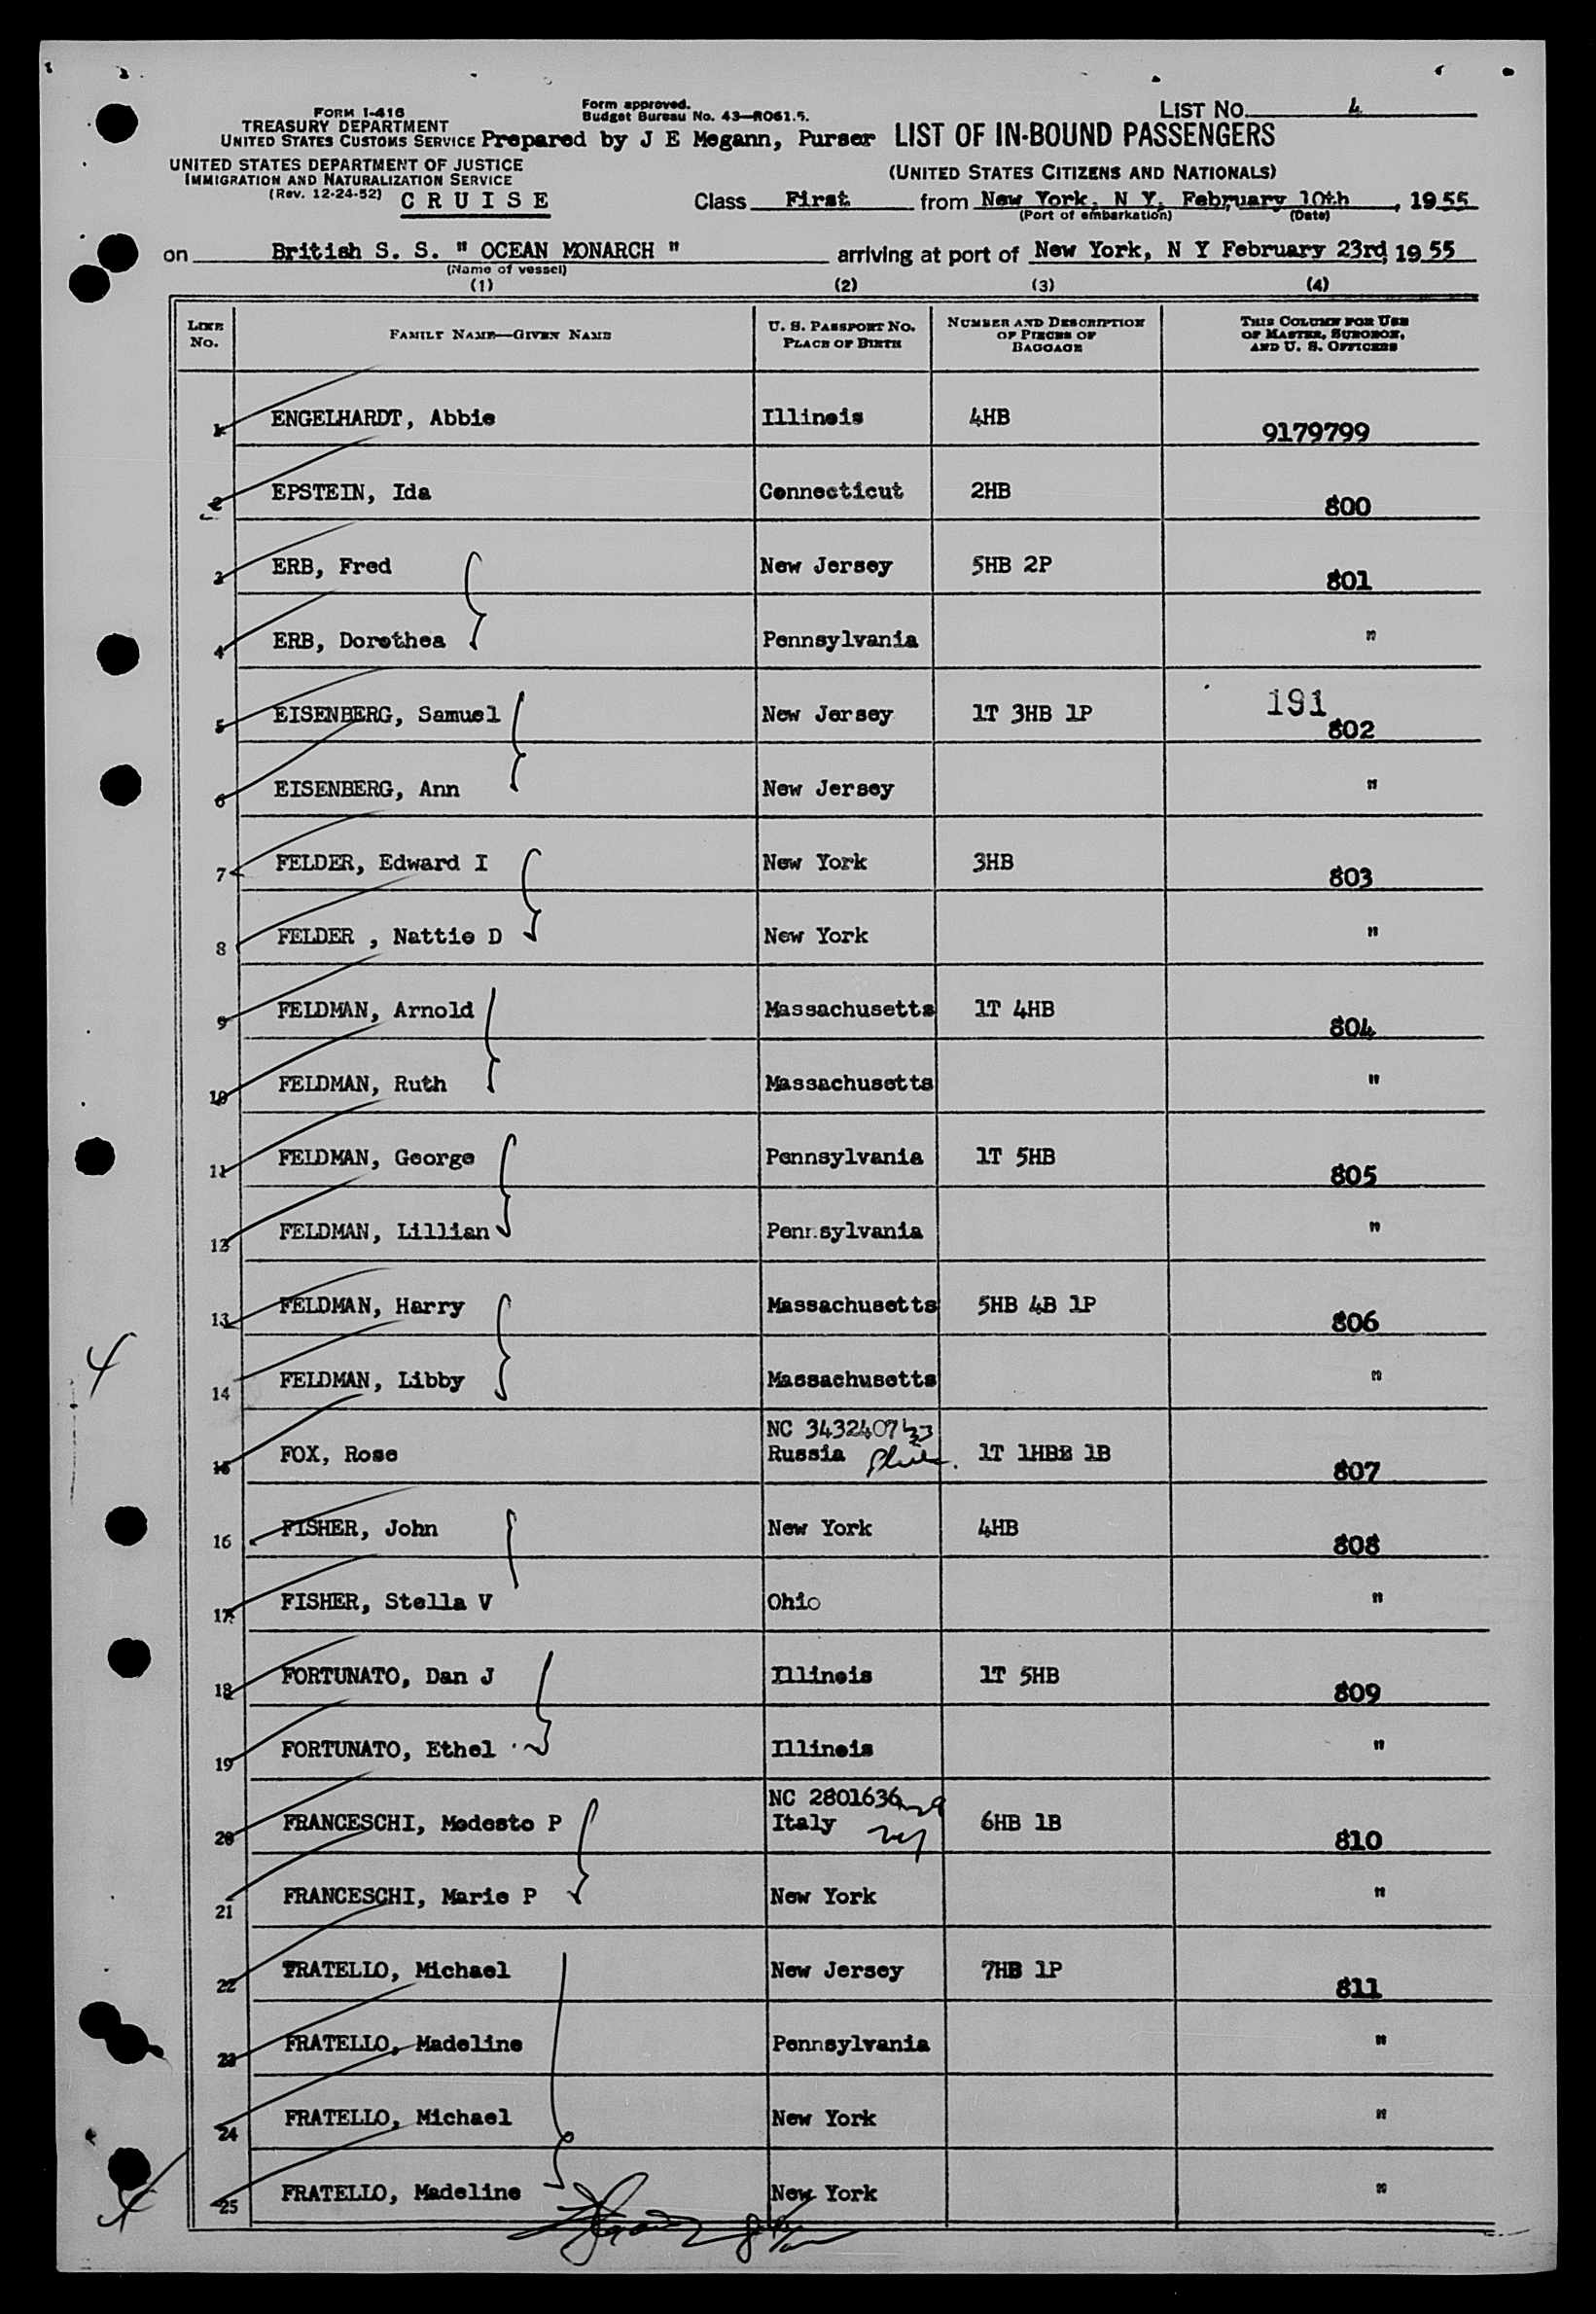 FORM I-416
TREASURY DEPARTMENT
UNITED STATES CUSTOMS SERVICE
UNITED STATES DEPARTMENT OF JUSTICE
IMMIGRATION AND NATURALIZATION SERVICE
(Rev. 12-24-52)
C R U I S E
Form approved.
Budget Bureau No. 43—R061.5.
Prepared by J E Megann, Purser
LIST NO. 4
LIST OF IN-BOUND PASSENGERS
(UNITED STATES CITIZENS AND NATIONALS)
Class First from New York, N Y, February 10th, 1955
(Port of embarkation) (Date)
on British S. S. " OCEAN MONARCH " arriving at port of New York, N Y February 23rd, 1955
(Name of vessel)
(1) (2) (3) (4)
LINE No. FAMILY NAME—GIVEN NAME U. S. PASSPORT NO. PLACE OF BIRTH NUMBER AND DESCRIPTION OF PIECES OF BAGGAGE THIS COLUMN FOR USE OF MASTER, SURGEON, AND U. S. OFFICERS
1 ENGELHARDT, Abbie Illinois 4HB 9179799
2 EPSTEIN, Ida Connecticut 2HB 800
3 ERB, Fred New Jersey 5HB 2P 801
4 ERB, Dorothea Pennsylvania "
191
5 EISENBERG, Samuel New Jersey 1T 3HB 1P 802
6 EISENBERG, Ann New Jersey "
7 FELDER, Edward I New York 3HB 803
8 FELDER , Nattie D New York "
9 FELDMAN, Arnold Massachusetts 1T 4HB 804
10 FELDMAN, Ruth Massachusetts "
11 FELDMAN, George Pennsylvania 1T 5HB 805
12 FELDMAN, Lillian Pennsylvania "
13 FELDMAN, Harry Massachusetts 5HB 4B 1P 806
4
14 FELDMAN, Libby Massachusetts "
NC 3432407
15 FOX, Rose Russia 1T 1HB 1B 807
16 FISHER, John New York 4HB 808
17 FISHER, Stella V Ohio "
18 FORTUNATO, Dan J Illinois 1T 5HB 809
19 FORTUNATO, Ethel Illinois "
NC 2801636
20 FRANCESCHI, Modesto P Italy 6HB 1B 810
21 FRANCESCHI, Marie P New York "
22 FRATELLO, Michael New Jersey 7HB 1P 811
23 FRATELLO, Madeline Pennsylvania "
24 FRATELLO, Michael New York "
25 FRATELLO, Madeline New York "